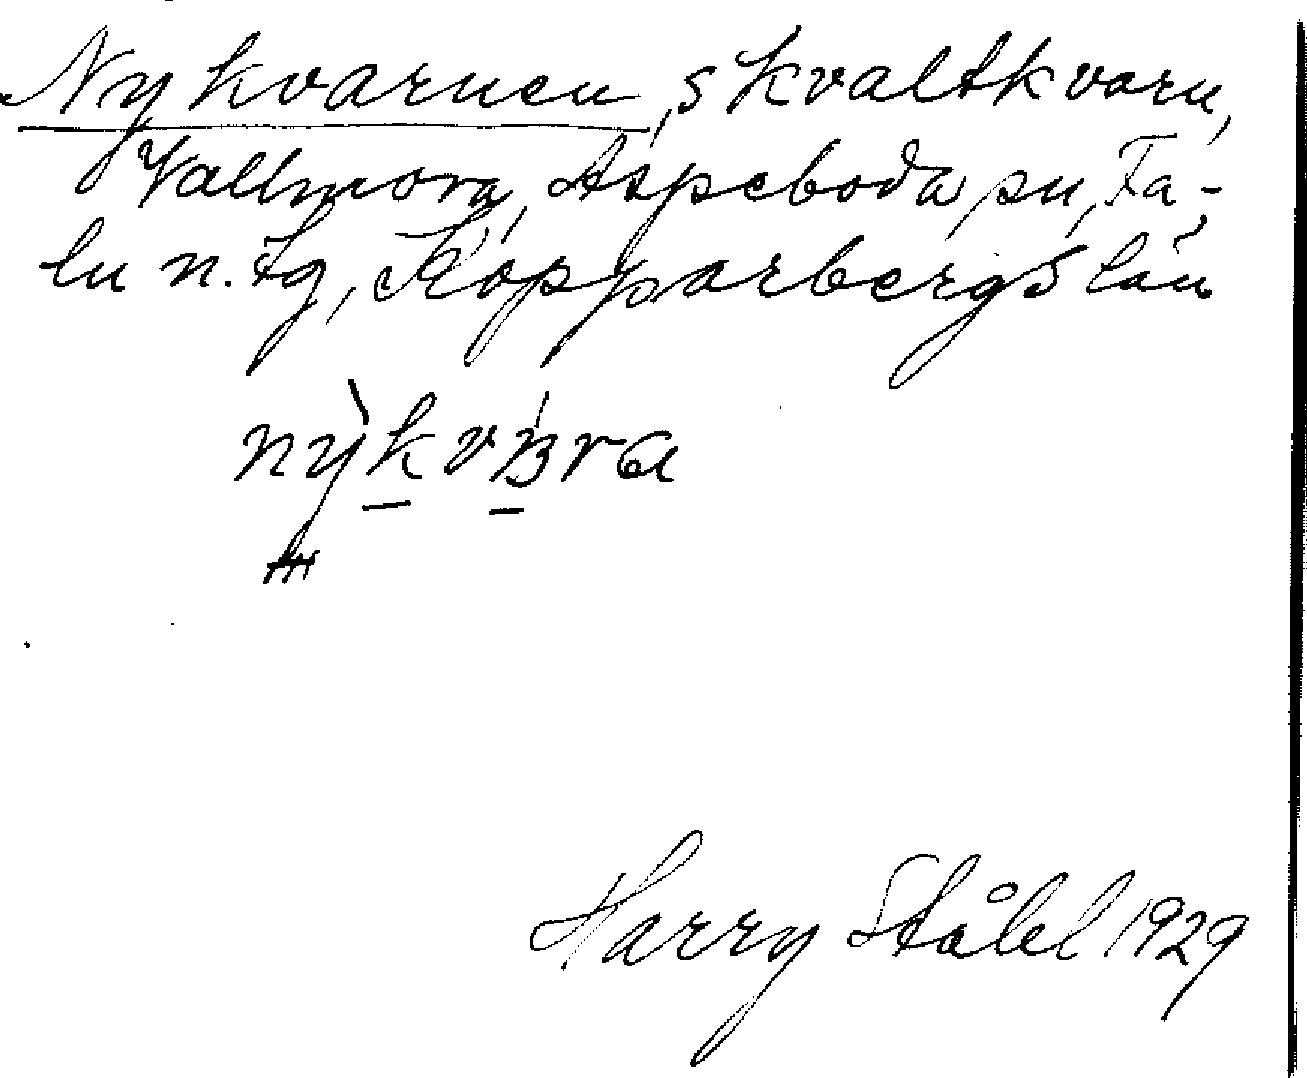 Nykvarnen, skvaltkvarn,
Vallmora, Aspeboda sn, Fa-
lu n. tg, Kopparbergs län
Harry Ståhl 1929